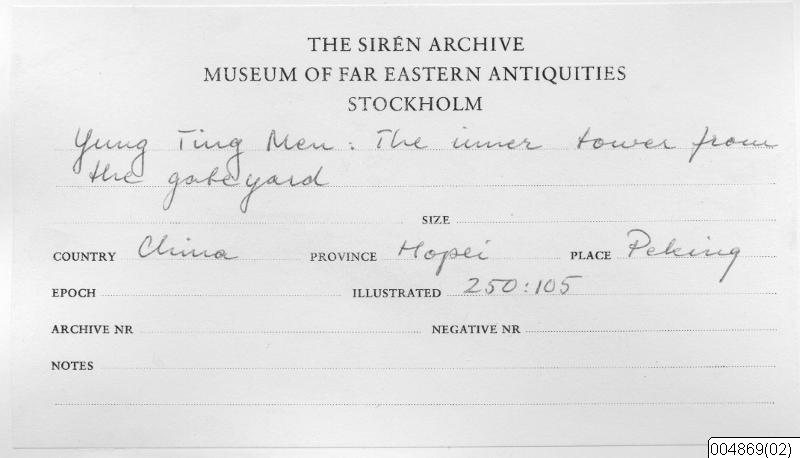 THE SIRÉN ARCHIVE
MUSEUM OF FAR EASTERN ANTIQUITIES
STOCKHOLM
Yung Ting Men : The inner tower from
the gateyard
SIZE
COUNTRY China PROVINCE Hopei PLACE Peking
EPOCH ILLUSTRATED 250:105
ARCHIVE NR NEGATIVE NR
NOTES
004869(02)